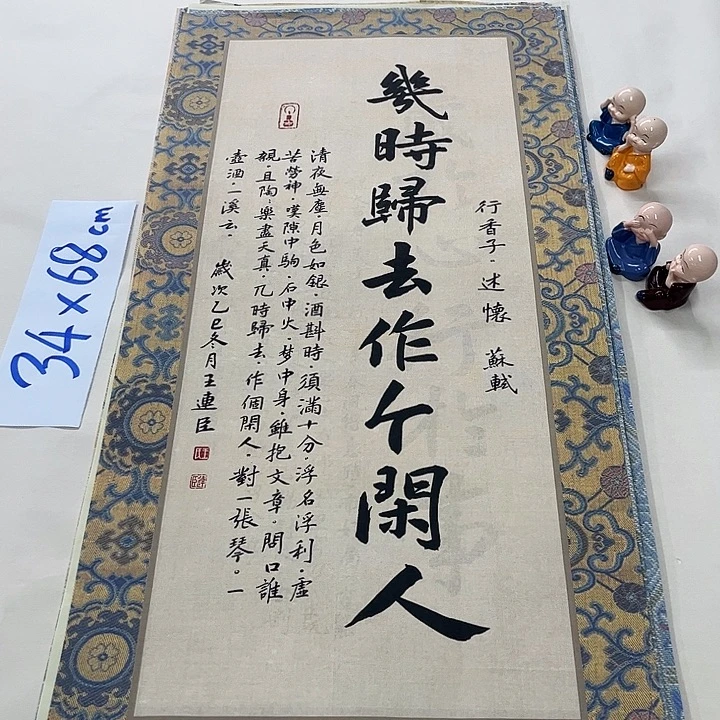 行香子·述懷 蘇軾
幾時歸去作个閑人
清夜無塵·月色如銀·酒斟時·須滿十分·浮名浮利·虛
苦勞神·嘆隙中駒·石中火·梦中身·雖抱文章。開口誰
親·且陶:樂盡天真·几時歸去·作個閑人·對一張琴。一
壺酒·一溪云· 歲次乙巳冬月王連臣
34×68cm